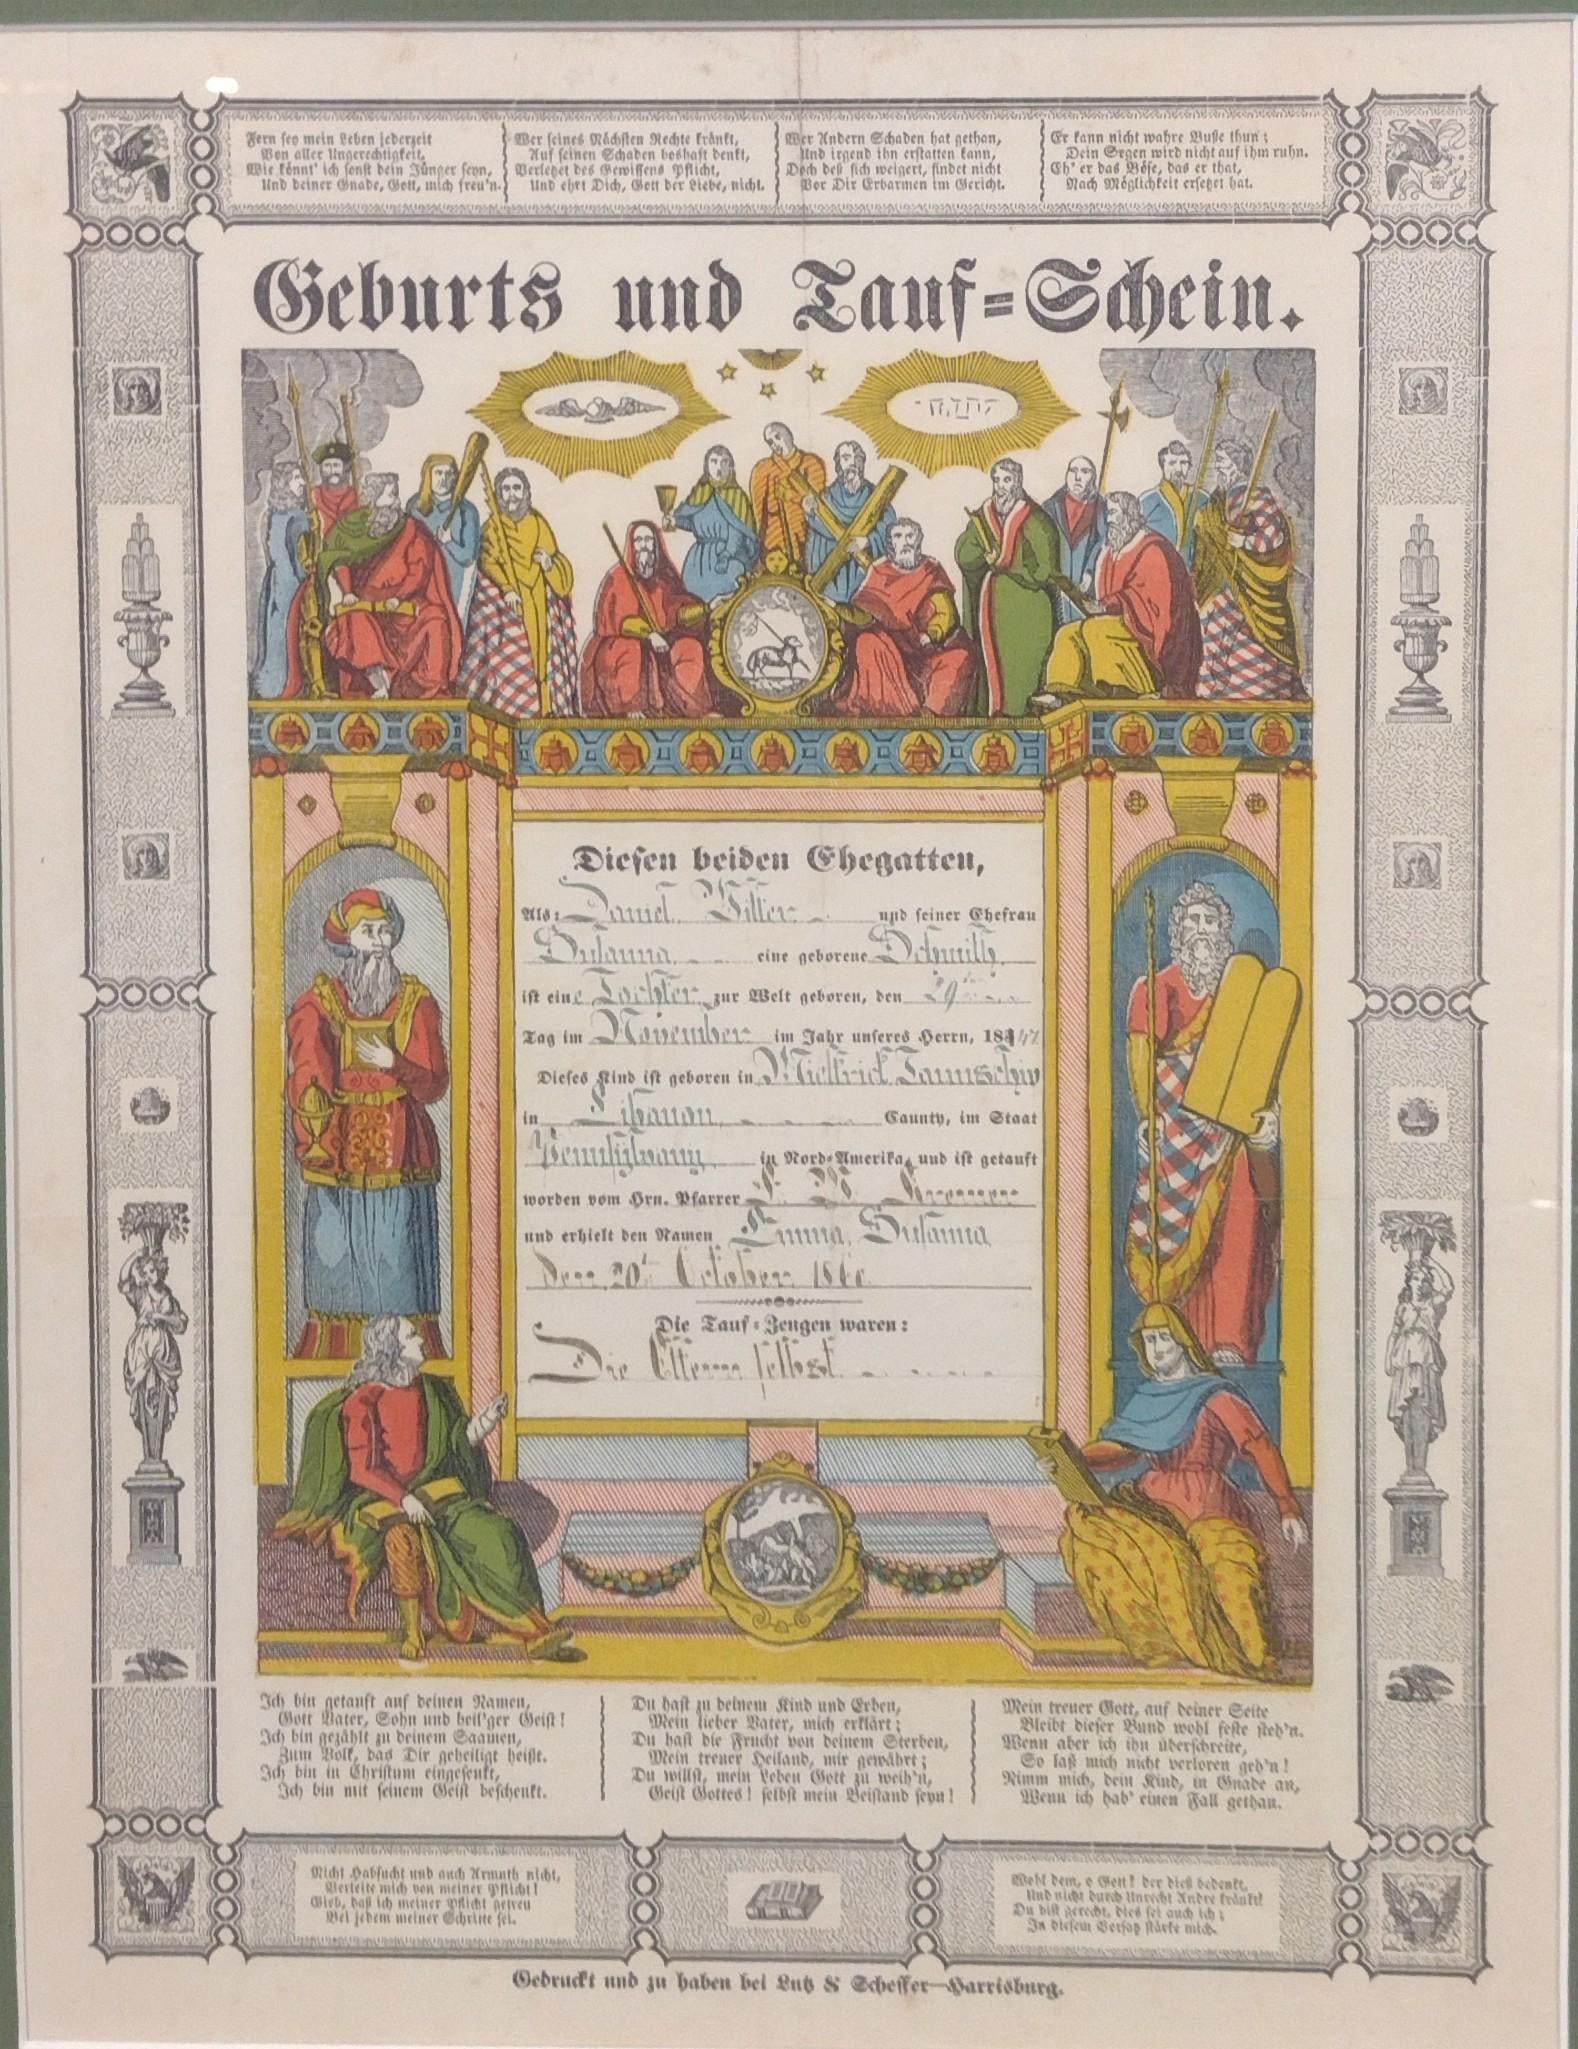 Fern sey mein Leben jederzeit
Von aller Ungerechtigkeit.
Wie könnt' ich sonst dein Jünger seyn,
Und deiner Gnade, Gott, mich freu'n.
Wer seines Nächsten Rechte kränkt,
Auf seinen Schaden boshaft denkt,
Verletzet des Gewissens Pflicht,
Und ehrt Dich, Gott der Liebe, nicht.
Wer Andern Schaden hat gethan,
Und irgend ihn erstatten kann,
Doch deß sich weigert, findet nicht
Vor Dir Erbarmen im Gericht.
Er kann nicht wahre Buße thun;
Dein Segen wird nicht auf ihm ruhn.
Eh' er das Böse, das er that,
Nach Möglichkeit ersetzet hat.
Geburts und Tauf=Schein.
Diesen beiden Ehegatten,
Als: Daniel und seiner Ehefrau
Susanna eine geborene Schmith
ist eine Tochter zur Welt geboren, den 29
Tag im November im Jahr unseres Herrn, 18
Dieses Kind ist geboren in Taunschip
in Libanon Caunty, im Staat
Pennsylvani in Nord=Amerika, und ist getauft
worden vom Hrn. Pfarrer
und erhielt den Namen Emma Susanna
Den 20 October
Die Tauf=Zeugen waren:
Die Eltern selbst
Ich bin getauft auf deinen Namen,
Gott Vater, Sohn und heil'ger Geist!
Ich bin gezählt zu deinem Saamen,
Zum Volk, das Dir geheiligt heißt.
Ich bin in Christum eingesenkt,
Ich bin mit seinem Geist beschenkt.
Du hast zu deinem Kind und Erben,
Mein lieber Vater, mich erklärt;
Du hast die Frucht von deinem Sterben,
Mein treuer Heiland, mir gewährt;
Du willst, mein Leben Gott zu weih'n,
Geist Gottes! selbst mein Beistand seyn!
Mein treuer Gott, auf deiner Seite
Bleibt dieser Bund wohl feste steh'n.
Wenn aber ich ihn überschreite,
So laß mich nicht verloren geh'n!
Nimm mich, dein Kind, in Gnade an,
Wenn ich hab' einen Fall gethan.
Nicht Habsucht und auch Armuth nicht,
Verleite mich von meiner Pflicht!
Gieb, daß ich meiner Pflicht getreu
Bei jedem meiner Schritte sei.
Wohl dem, o Gott! der dieß bedenkt,
Und nicht durch Unrecht Andre kränkt!
Du bist gerecht, dies sei auch ich;
In diesem Vorsatz stärke mich.
Gedruckt und zu haben bei Lutz & Scheffer—Harrisburg.